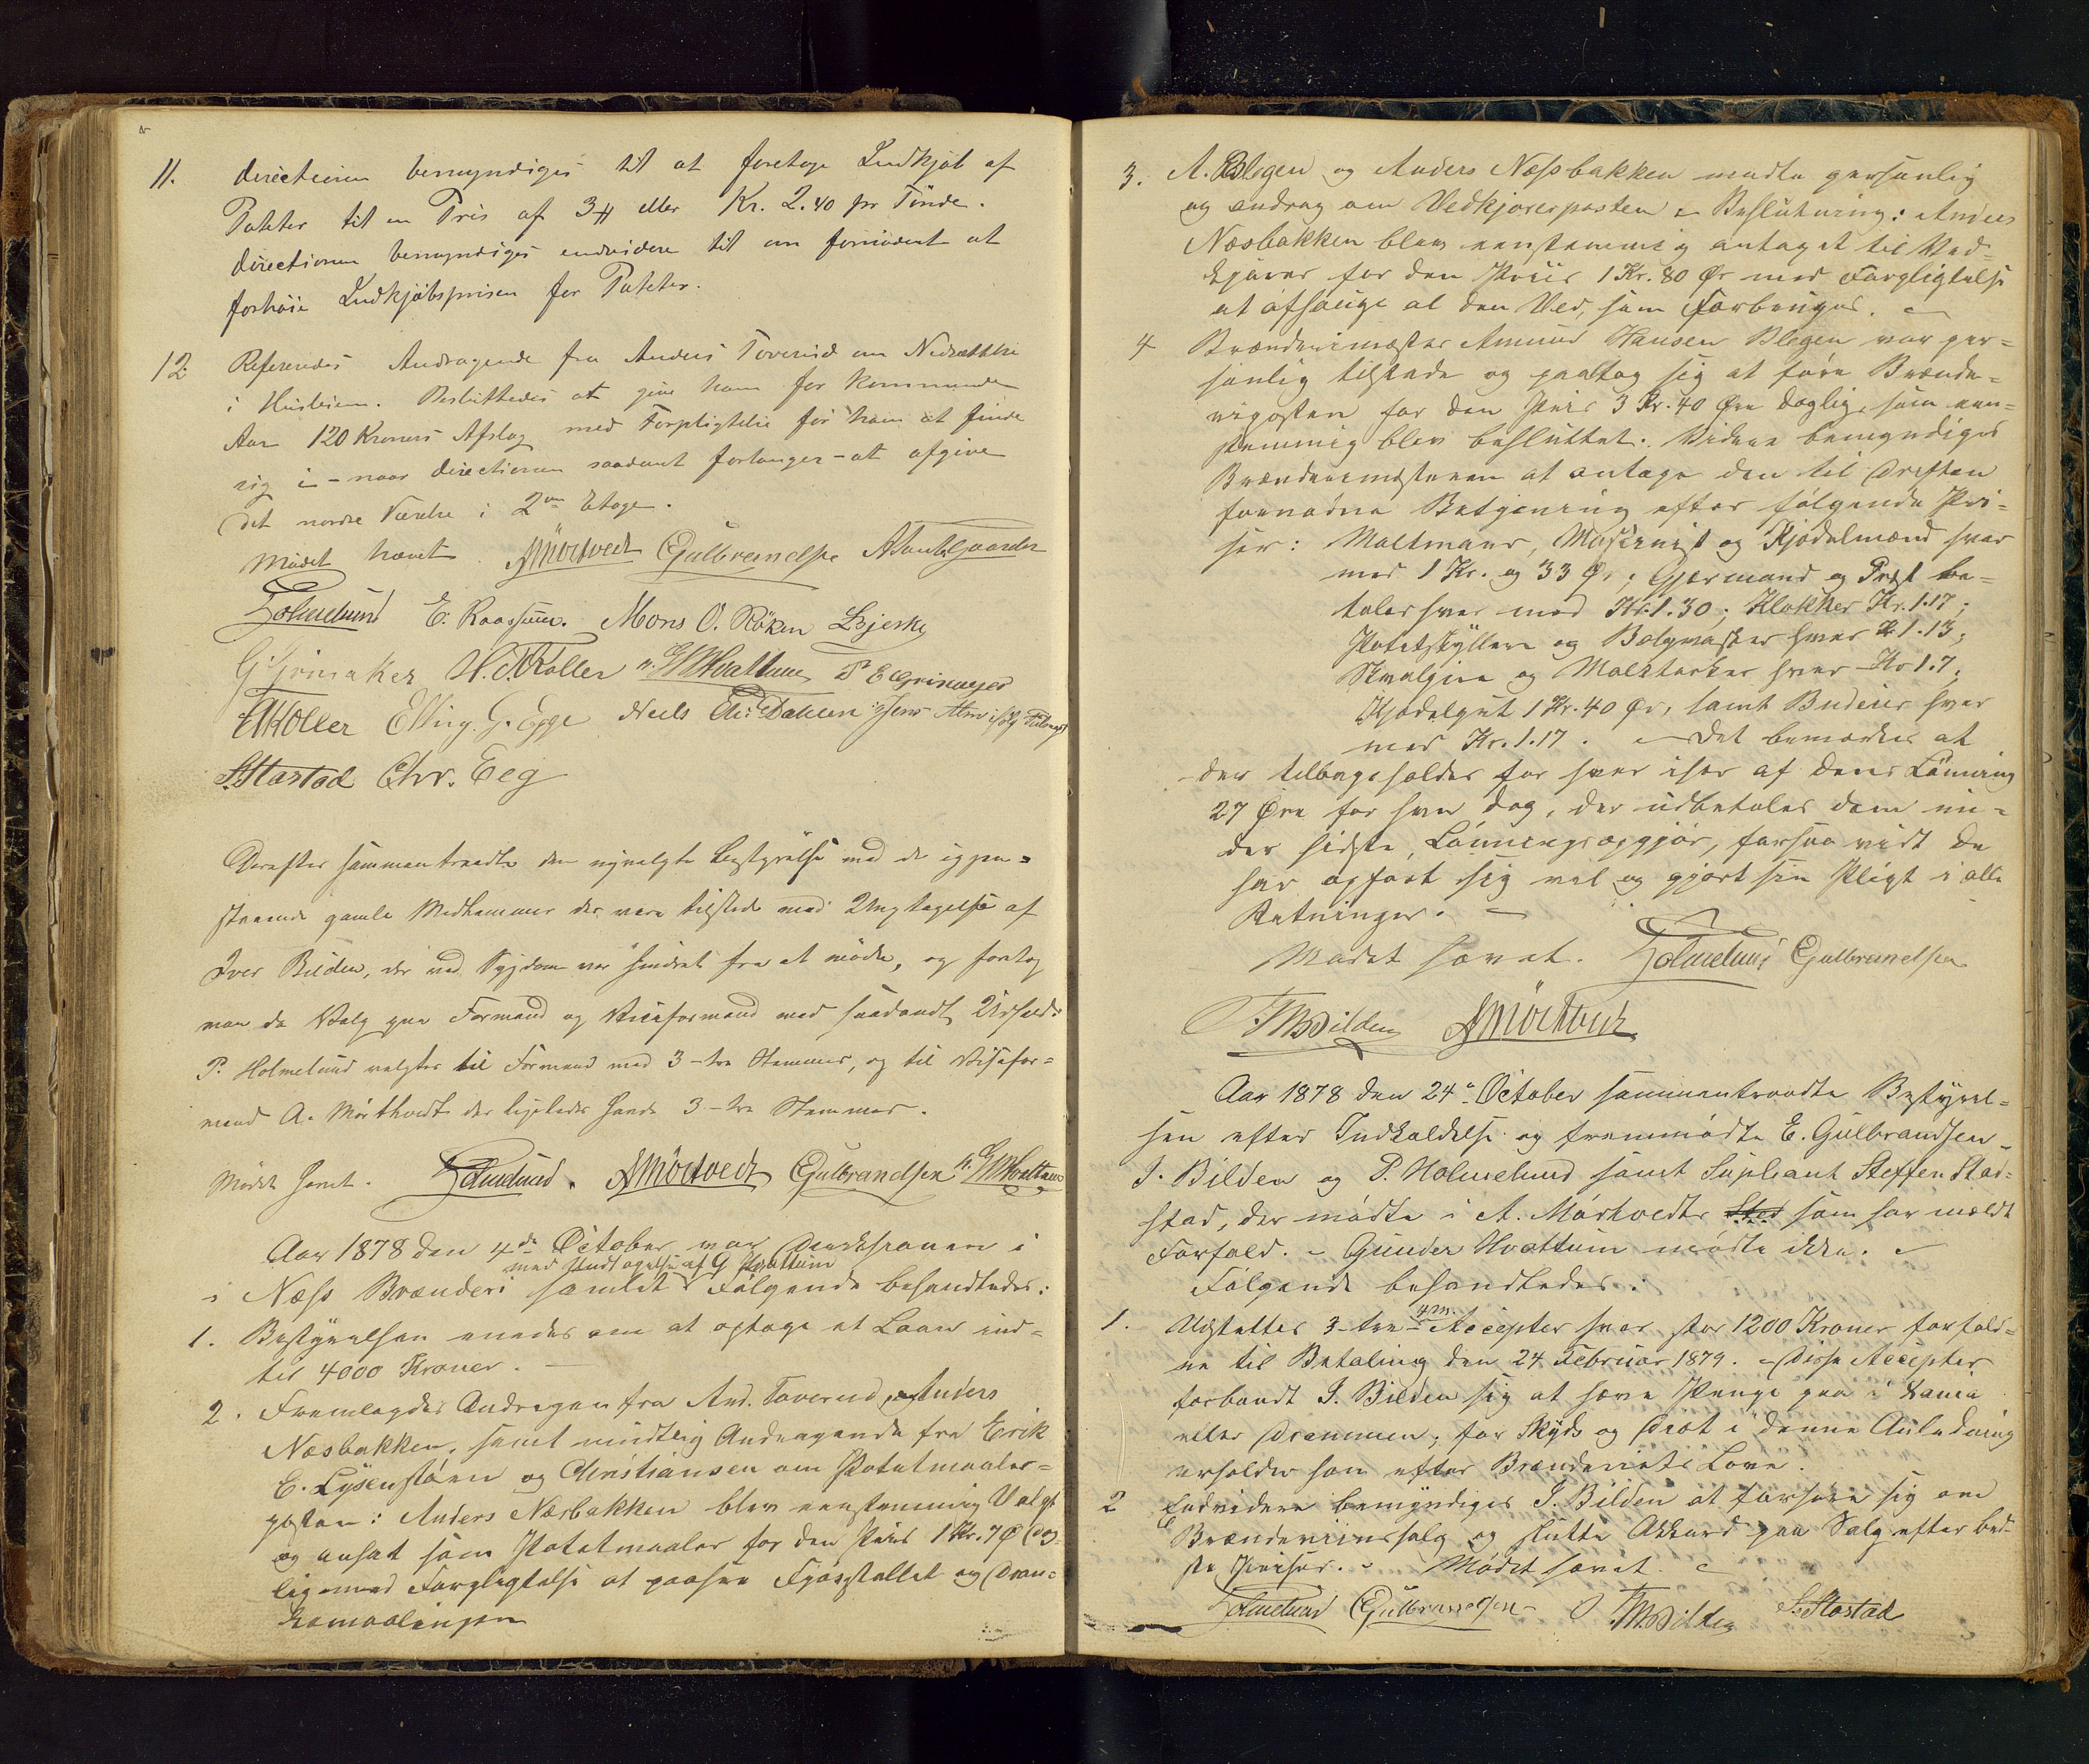 11. Directionen bemyndiges til at foretage Indkjøb af
Poteter til en Pris af 3 ℔ eller Kr. 2.40 pr Tønde.
Directionen bemyndiges endvidere til om fornødent at
forhøie Indkjøbsprisen for Poteter.
12. Refereredes Andragende fra Anders Toverud om Nedsættelse
i Husleien. Besluttedes at give ham for kommende
Aar 120 Kroners Afslag med Forpligtelse for ham at finde
sig i – naar Directionen saadant forlanger – at afgive
det nordre Værelse i 2den Etage.
Mødet hævet. AMörtvedt EGulbrandsen
PHolmelund E. Kaassuner. Mons O. Röken LBjerke
G Grinaker H. T. Koller G M Hvattum P E Grinager
EAKoller Elling. G. Egge Neels Dahlen
S. Stastad Chr. Eeg
Derefter sammentraadte den nyvalgte Bestyrelse med de igjen=
staaende gamle Medlemmer der vare tilstede med Undtagelse af
Iver Bilden, der ved Sygdom var hindret fra at møde, og foretog
man da Valg paa Formand og Viceformand med saadant Udfald:
P. Holmelund valgtes til Formand med 3–tre Stemmer, og til Visefor=
mand A. Mørthvedt der ligeledes havde 3–tre Stemmer.
Mødet hævet. PHolmelund. AMörtvedt EGulbrandsen G M Hvattum
Aar 1878 den 4de October var Direksionen i
med Undtagelse af G Hvattum
i Næss Brænderi samlet Følgende behandledes:
1. Bestyrelsen enedes om at optage et Laan ind=
til 4000 Kroner. —
2. Fremlagdes Andragen fra And. Toverud, og Anders
Næsbakken, samt mundtlig Andragende fra Erik
E. Lysenstøen og Christiansen om Potetmaaler=
posten: Anders Næsbakken blev eenstemmig Valgt
og ansat som Potetmaaler for den Priis 1 Kr. 7 Ø Dag=
lig med Forpligtelse at paasee Fjøsstallet og Dran=
kemaalingen
3. A. Blegen og Anders Næssbakken mødte personlig
og androg om Vedkjørerposten – Beslutning: Anders
Næsbakken blev eenstemmig antaget til Ved=
kjører for den Priis 1 Kr. 80 Ør med Forpligtelse
at afsauge al den Ved, som forbruges. —
4 Brænderimester Amund Hansen Blegen var per=
sonlig tilstede og paatog sig at føre Brænde=
riposten for den Pris 3 Kr. 40 Øre daglig, som een=
stemmig blev besluttet. Videre bemyndiges
Brænderimesteren at antage den til Driften
fornødne Betjening efter følgende Pri=
ser: Maltmand, Maskinist og Kjedelmand hver
med 1 Kr. og 33 Ør; Gjærmand og Præst be=
tales hver med Kr. 1.30; Klokker Kr. 1.17;
Potetskyllere og Bolgvasker hver Kr 1.13;
og Malttørker hver Kr 1.7;
Kjedelgut 1 Kr. 40 Ør, samt Budeier hver
med Kr. 1.17. – Det bemærkes at
der tilbageholdes for hver især af deres Lønning
27 Øre for hver Dag, der udbetales dem un=
der sidste Lønningsopgjør, forsaavidt de
har opført sig vel og gjort sin Pligt i alle
Retninger. —
Mødet hævet. PHolmelund EGulbrandsen
I. M Bilden AMörtvedt
Aar 1878 den 24de October sammentraadte Bestyrel=
sen efter Indkaldelse og fremmødte E. Gulbrandsen –
I. Bilden og P. Holmelund samt Supleant Steffen Stad=
stad, der mødte i A. Mørtvedts Sted som har meldt
Forfald. – Gunder Hvattum mødte ikke. –
Følgende behandledes:
1. Udstettes 3–tre – 4 m. Accepter hver stor 1200 Kroner forfald=
ne til Betaling den 24 Februar 1879. – Disse Accepter
forbandt I. Bilden sig at hæve Penge paa i Xania
eller Drammen; for Skyds og Diæt i denne Anledning
erholder han efter Brænderiets Love.
2 Endvidere bemyndiges I. Bilden at forhøre sig om
Brændeviinssalg og slutte Akkord paa Salg efter bed=
ste Priser. – Mødet hævet. –
PHolmelund EGulbrandsen I. M Bilden S. Stastad